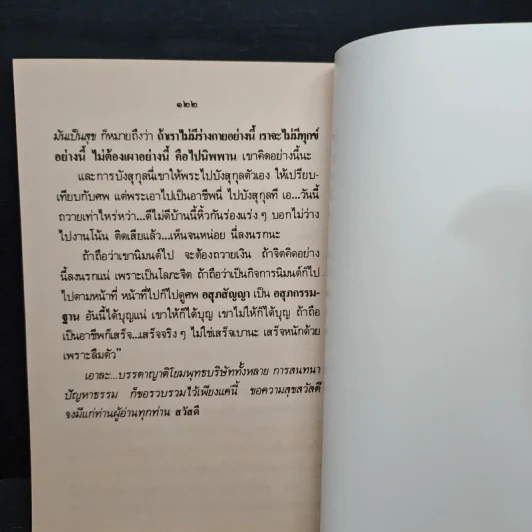 ๑๒๒
มันเป็นสุข ก็หมายถึงว่า ถ้าเราไม่มีร่างกายอย่างนี้ เราจะไม่มีทุกข์
อย่างนี้ ไม่ต้องเผาอย่างนี้ คือไปนิพพาน เขาคิดอย่างนี้นะ
และการบังสุกุลนี่เขาให้พระไปบังสุกุลตัวเอง ให้เปรียบ-
เทียบกับศพ แต่พระเอาไปเป็นอาชีพนี่ ไปบังสุกุลที เอ...วันนี้
ถวายเท่าไหร่หว่า...ดีไม่ดีบ้านนี้หิ้วกันร่องแร่ง ๆ บอกไม่ว่าง
ไปงานโน้น ติดเสียแล้ว...เห็นจนหน่อย นี่ลงนรกนะ
ถ้าถือว่าเขานิมนต์ไป จะต้องถวายเงิน ถ้าจิตคิดอย่าง
นี้ลงนรกแน่ เพราะเป็นโลภะจิต ถ้าถือว่าเป็นกิจการนิมนต์ก็ไป
ไปตามหน้าที่ หน้าที่ไปก็ไปดูศพ อสุภสัญญา เป็น อสุภกรรม-
ฐาน อันนี้ได้บุญแน่ เขาให้ก็ได้บุญ เขาไม่ให้ก็ได้บุญ ถ้าถือ
เป็นอาชีพก็เสร็จ...เสร็จจริง ๆ ไม่ใช่เสร็จเบานะ เสร็จหนักด้วย
เพราะลืมตัว"
เอาละ...บรรดาญาติโยมพุทธบริษัททั้งหลาย การสนทนา
ปัญหาธรรม ก็ขอรวบรวมไว้เพียงแค่นี้ ขอความสุขสวัสดี
จงมีแก่ท่านผู้อ่านทุกท่าน สวัสดี